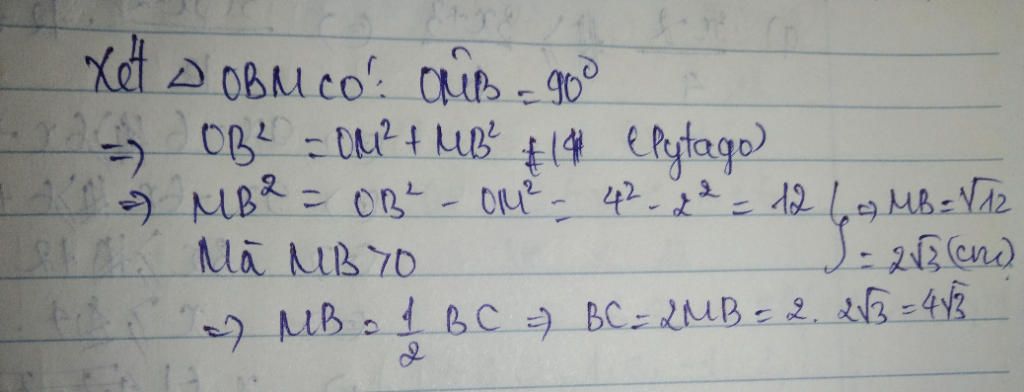 Xét △ OBM có: OM̂B = 90⁰
⇒ OB² = OM² + MB² (Pytago)
⇒ MB² = OB² - OM² = 4² - 2² = 12 } ⇒ MB = √12
Mà MB > 0 = 2√3 (cm)
⇒ MB = 1/2 BC ⇒ BC = 2MB = 2. 2√3 = 4√3